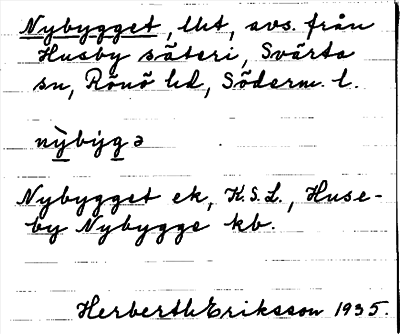 Nybygget, lht, avs. från
Husby säteri, Svärta
sn, Rönö hd, Söderm. l.
nỳbýgə
Nybygget ek, K.S.L., Huse-
by Nybygge kb.
Herberth Eriksson 1935.